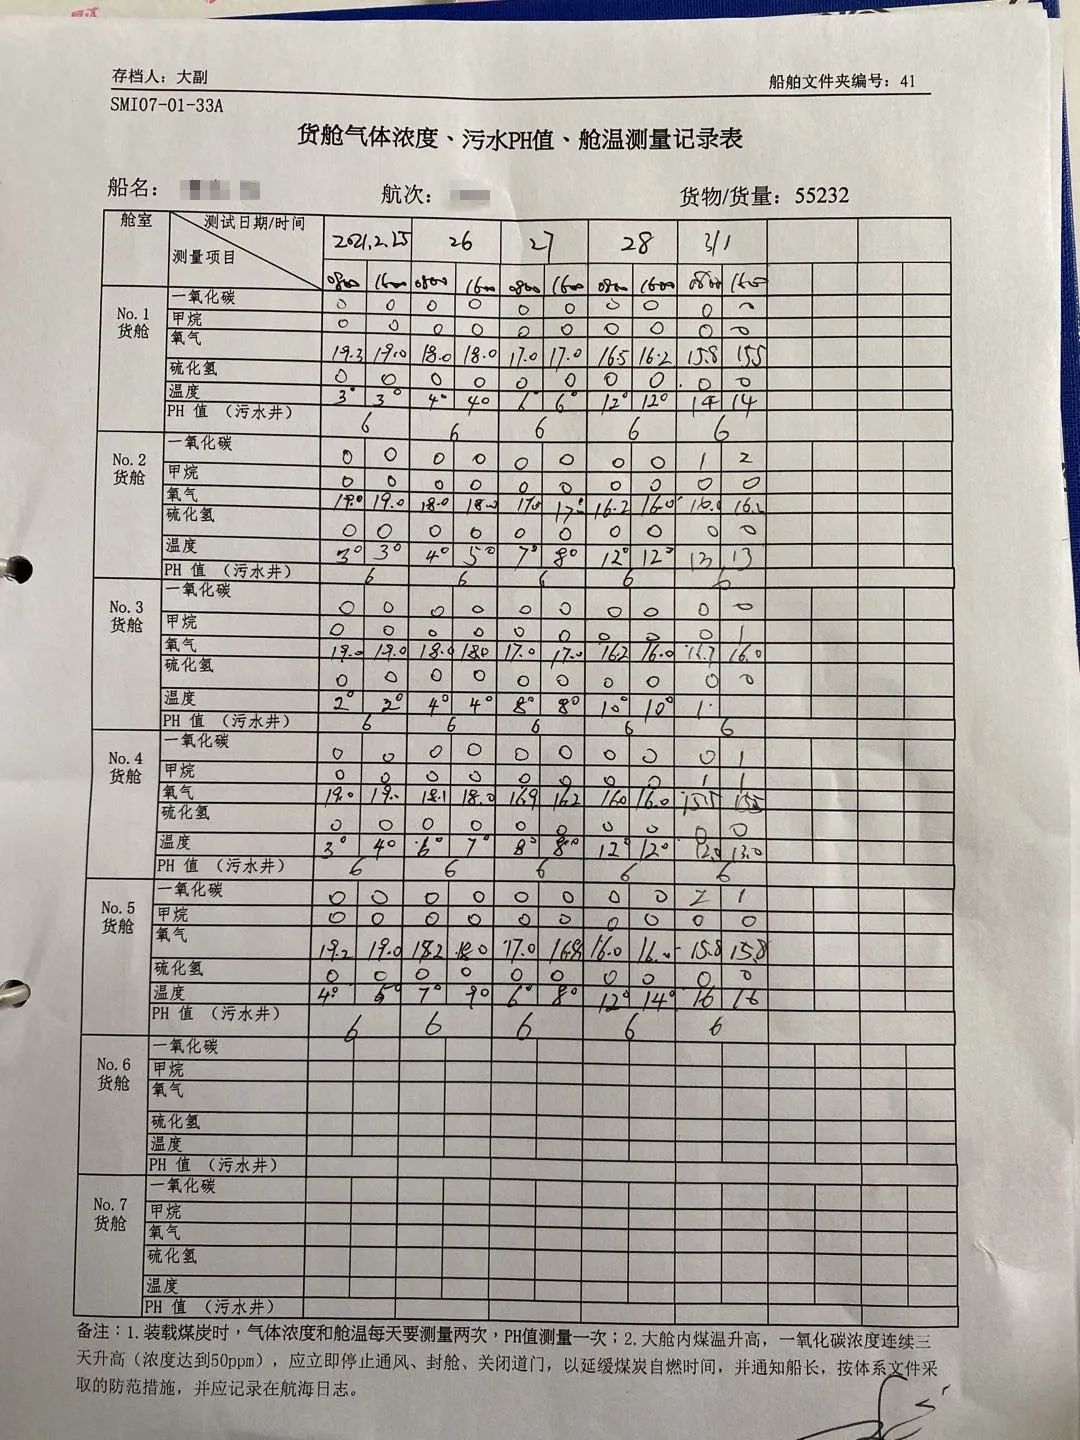 存档人：大副 船舶文件夹编号：41
SMI07-01-33A
货舱气体浓度、污水PH值、舱温测量记录表
船名： 航次： 货物/货量：55232
舱室 测试日期/时间 2021.2.25 26 27 28 3/1
测量项目
0800 1600 0800 1600 0800 1600 0800 1600 0800 1600
No.1 货舱
一氧化碳 0 0 0 0 0 0 0 0 0 0
甲烷 0 0 0 0 0 0 0 0 0 0
氧气 19.3 19.0 18.0 18.0 17.0 17.0 16.5 16.2 15.8 15.5
硫化氢 0 0 0 0 0 0 0 0 0 0
温度 3° 3° 4° 4° 6° 6° 12° 12° 14 14
PH 值 （污水井） 6 6 6 6 6
No.2 货舱
一氧化碳 0 0 0 0 0 0 0 0 1 2
甲烷 0 0 0 0 0 0 0 0 0 0
氧气 19.0 19.0 18.0 18.0 16.2 16.0 16.2
硫化氢 0 0 0 0 0 0 0 0 0 0
温度 3° 3° 4° 5° 7° 8° 12° 12° 13 13
PH 值 （污水井） 6 6 6 6 6
No.3 货舱
一氧化碳 0 0 0 0 0 0 0 0 0 0
甲烷 0 0 0 0 0 0 0 0 0 1
氧气 19.0 19.0 18.0 18.0 17.0 17.0 16.2 16.0 16.0
硫化氢 0 0 0 0 0 0 0 0 0 0
温度 2° 2° 4° 4° 8° 8° 10° 10°
PH 值 （污水井） 6 6 6 6 6
No.4 货舱
一氧化碳 0 0 0 0 0 0 0 0 0 1
甲烷 0 0 0 0 0 0 0 0 1 1
氧气 19.0 19.0 18.1 18.0 16.9 16.2 16.0 16.0 15.5 15.5
硫化氢 0 0 0 0 0 0 0 0 0 0
温度 3° 4° 6° 7° 8° 8° 12° 12° 12.0 13.0
PH 值 （污水井） 6 6 6 6 6
No.5 货舱
一氧化碳 0 0 0 0 0 0 0 0 2 1
甲烷 0 0 0 0 0 0 0 0 0 0
氧气 19.2 19.0 18.2 18.0 17.0 16.8 16.0 16.0 15.8 15.8
硫化氢 0 0 0 0 0 0 0 0 0 0
温度 4° 7° 9° 6° 8° 12° 14° 16 16
PH 值 （污水井） 6 6 6 6 6
No.6 货舱
一氧化碳
甲烷
氧气
硫化氢
温度
PH 值 （污水井）
No.7 货舱
一氧化碳
甲烷
氧气
硫化氢
温度
PH 值 （污水井）
备注：1.装载煤炭时，气体浓度和舱温每天要测量两次，PH值测量一次；2.大舱内煤温升高，一氧化碳浓度连续三
天升高（浓度达到50ppm），应立即停止通风、封舱、关闭道门，以延缓煤炭自燃时间，并通知船长，按体系文件采
取的防范措施，并应记录在航海日志。